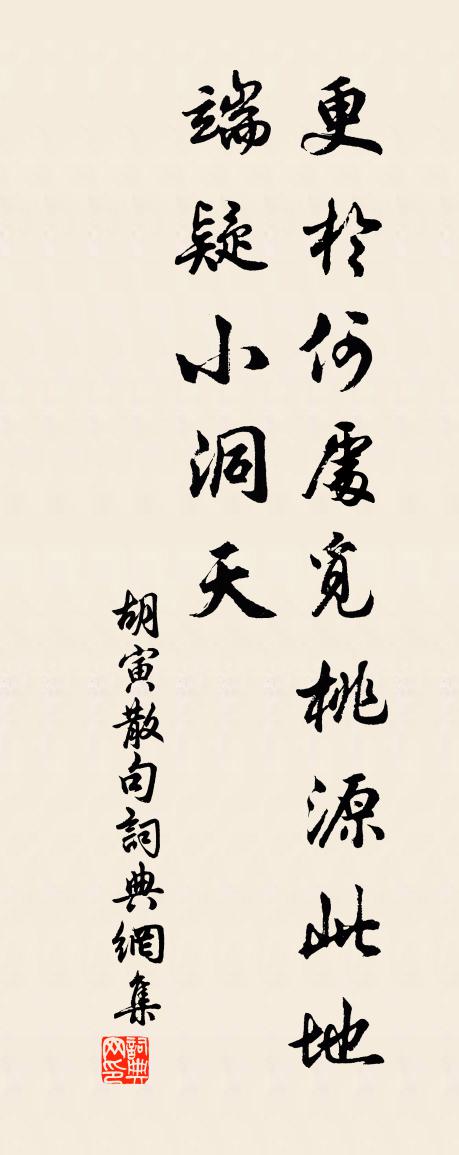 更於何處覓桃源此地
端疑小洞天
胡寅散句詞典網集
詞典网印